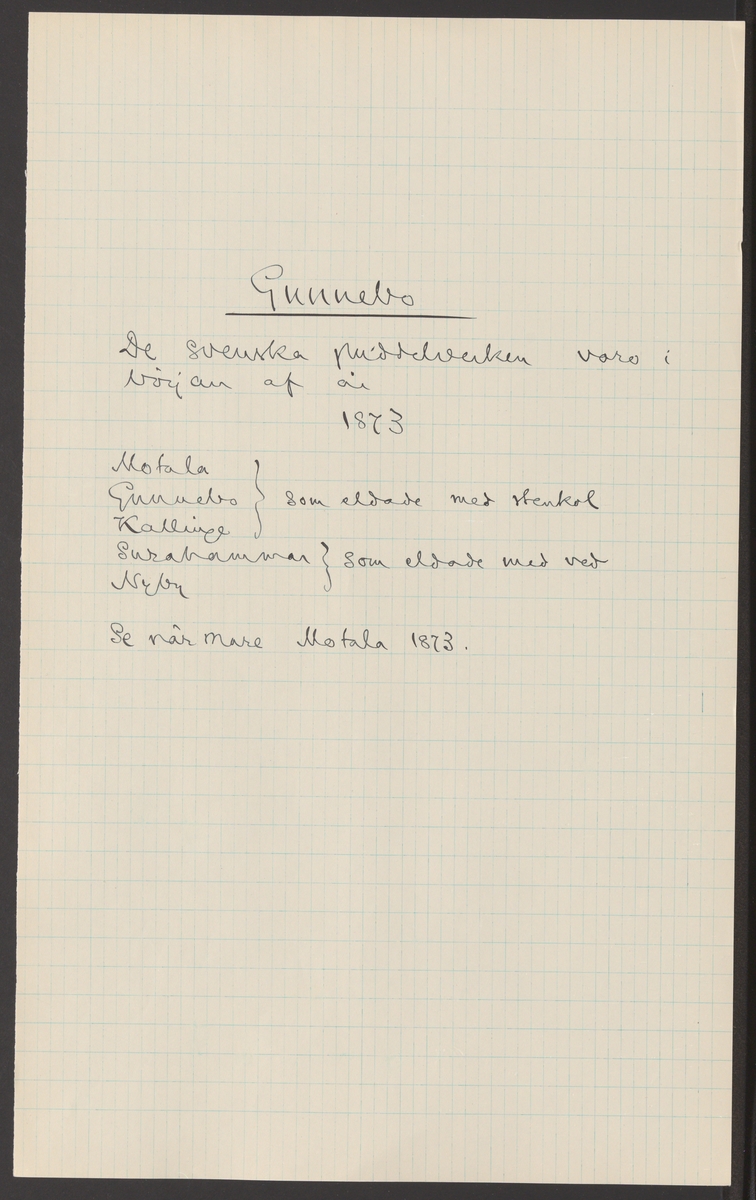 Gunnebo
De svenska puddelverken voro i
början af år
1873
Motala
Gunnebo } som eldade med stenkol
Kallinge
Surahammar } som eldade med ved
Nyby
Se närmare Motala 1873.